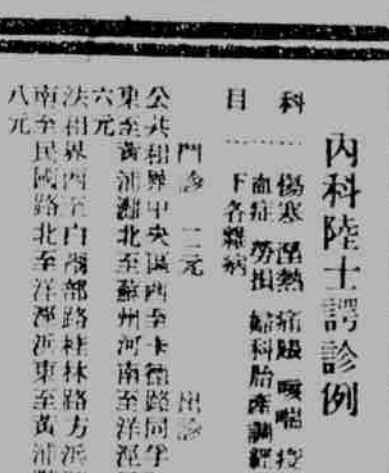 內科陸士諤診例
科目
傷寒 溼熱 痛脹 咳喘
血症 勞損 婦科胎產調經
下各雜病
門診 二元 出診
公共租界中央區西至卡德路同孚
東至黃浦灘北至蘇州河南至洋涇
六元
法租界西至白爾部路桂林路方浜
南至民國路北至洋涇浜東至黃浦
八元